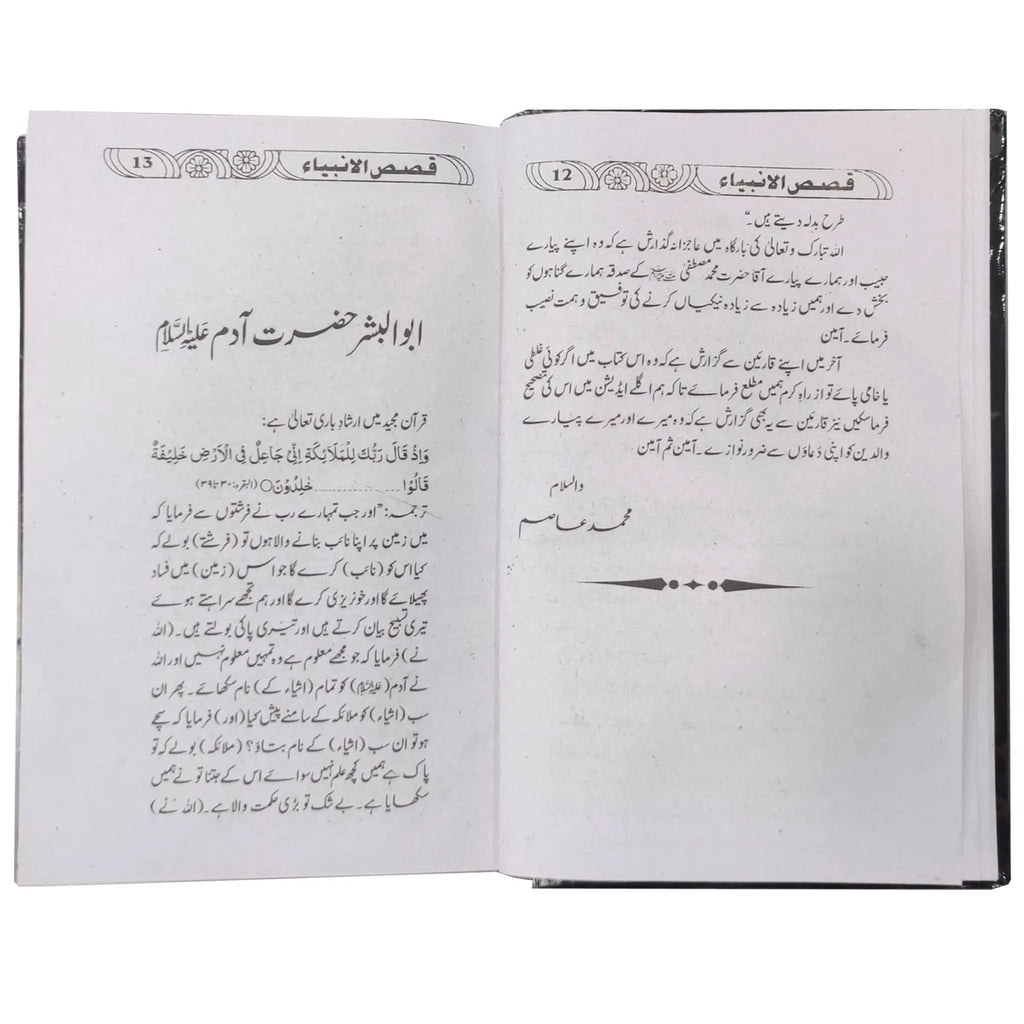 قصص الانبیاء 12
طرح بدلہ دیتے ہیں۔“
اللہ تبارک و تعالیٰ کی بارگاہ میں عاجزانہ گذارش ہے کہ وہ اپنے پیارے
حبیب اور ہمارے پیارے آقا حضرت محمد مصطفیٰ ﷺ کے صدقہ ہمارے گناہوں کو
بخش دے اور ہمیں زیادہ سے زیادہ نیکیاں کرنے کی توفیق و ہمت نصیب
فرمائے۔ آمین
آخر میں اپنے قارئین سے گزارش ہے کہ وہ اس کتاب میں اگر کوئی غلطی
یا خامی پائے تو از راہِ کرم ہمیں مطلع فرمائے تاکہ ہم اگلے ایڈیشن میں اس کی تصحیح
فرما سکیں نیز قارئین سے یہ بھی گزارش ہے کہ وہ میرے اور میرے پیارے
والدین کو اپنی دُعاؤں سے ضرور نوازے۔ آمین ثم آمین
والسلام
محمد عاصم
قصص الانبیاء 13
ابوالبشر حضرت آدم عَلَیْہِ السَّلَام
قرآن مجید میں ارشادِ باری تعالیٰ ہے:
وَاِذْ قَالَ رَبُّكَ لِلْمَلَآئِكَةِ اِنِّیْ جَاعِلٌ فِی الْاَرْضِ خَلِیْفَةً
قَالُوْا .................... خٰلِدُوْنَ○ (البقرہ: ۳۰ تا ۳۹)
ترجمہ: ”اور جب تمہارے رب نے فرشتوں سے فرمایا کہ
میں زمین پر اپنا نائب بنانے والا ہوں تو (فرشتے) بولے کہ
کیا اس کو (نائب) کرے گا جو اس (زمین) میں فساد
پھیلائے گا اور خونریزی کرے گا اور ہم تجھے سراہتے ہوئے
تیری تسبیح بیان کرتے ہیں اور تیری پاکی بولتے ہیں۔ (اللہ
نے) فرمایا کہ جو مجھے معلوم ہے وہ تمہیں معلوم نہیں اور اللہ
نے آدم (علیہ السلام) کو تمام (اشیاء کے) نام سکھائے۔ پھر ان
سب (اشیاء) کو ملائکہ کے سامنے پیش کیا (اور) فرمایا کہ سچے
ہو تو ان سب (اشیاء) کے نام بتاؤ؟ (ملائکہ) بولے کہ تو
پاک ہے ہمیں کچھ علم نہیں سوائے اس کے جتنا تو نے ہمیں
سکھایا ہے۔ بے شک تو بڑی حکمت والا ہے۔ (اللہ نے)